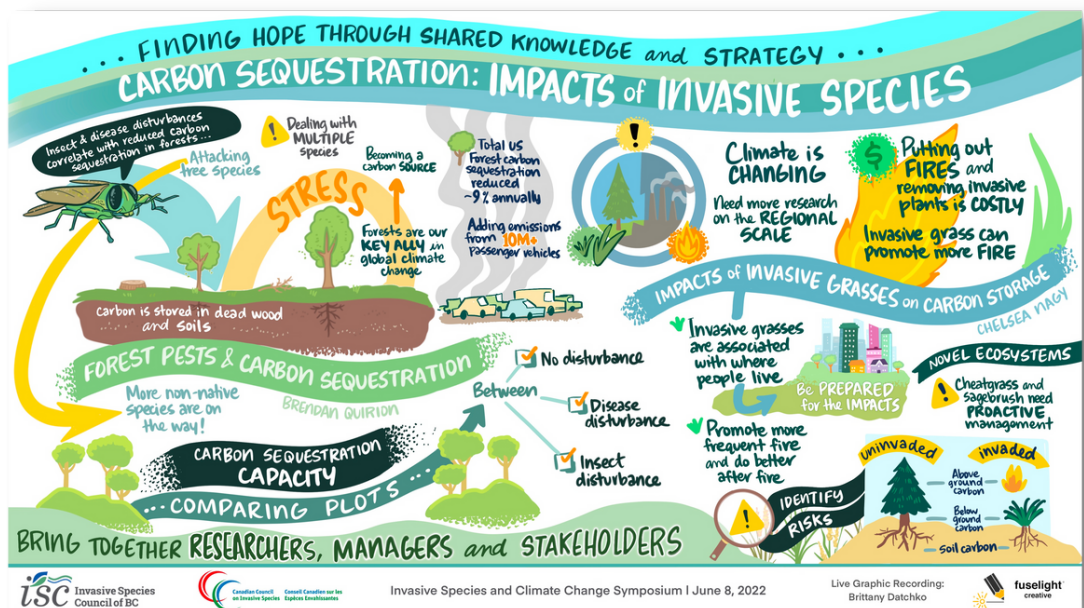 ... FINDING HOPE THROUGH SHARED KNOWLEDGE and STRATEGY ...
CARBON SEQUESTRATION: IMPACTS of INVASIVE SPECIES
Insect & disease disturbances
correlate with reduced carbon
sequestration in forests...
Attacking
tree species
Dealing with
MULTIPLE
species
STRESS
Becoming a
carbon SOURCE
Forests are our
KEY ALLY in
global climate
change
Total US
Forest carbon
sequestration
reduced
~9% annually
Adding emissions
from 10M+
passenger vehicles
carbon is stored in dead wood
and soils
FOREST PESTS & CARBON SEQUESTRATION
BRENDAN QUIRION
More non-native
species are on
the way!
CARBON SEQUESTRATION
CAPACITY
...COMPARING PLOTS...
Between
No disturbance
Disease
disturbance
Insect
disturbance
BRING TOGETHER RESEARCHERS, MANAGERS and STAKEHOLDERS
!
Climate is
CHANGING
Need more research
on the REGIONAL
SCALE
$
Putting out
FIRES and
removing invasive
plants is COSTLY
Invasive grass can
promote more FIRE
IMPACTS of INVASIVE GRASSES on CARBON STORAGE
CHELSEA NAGY
Invasive grasses
are associated
with where
people live
Be PREPARED
for the IMPACTS
Promote more
frequent fire
and do better
after fire
IDENTIFY
RISKS
NOVEL ECOSYSTEMS
Cheatgrass and
sagebrush need
PROACTIVE
management
uninvaded
invaded
Above
ground
carbon
Below
ground
carbon
Soil carbon
isc Invasive Species
Council of BC
Canadian Council
on Invasive Species
Conseil Canadien sur les
Espèces Envahissantes
Invasive Species and Climate Change Symposium | June 8, 2022
Live Graphic Recording:
Brittany Datchko
fuselight
creative